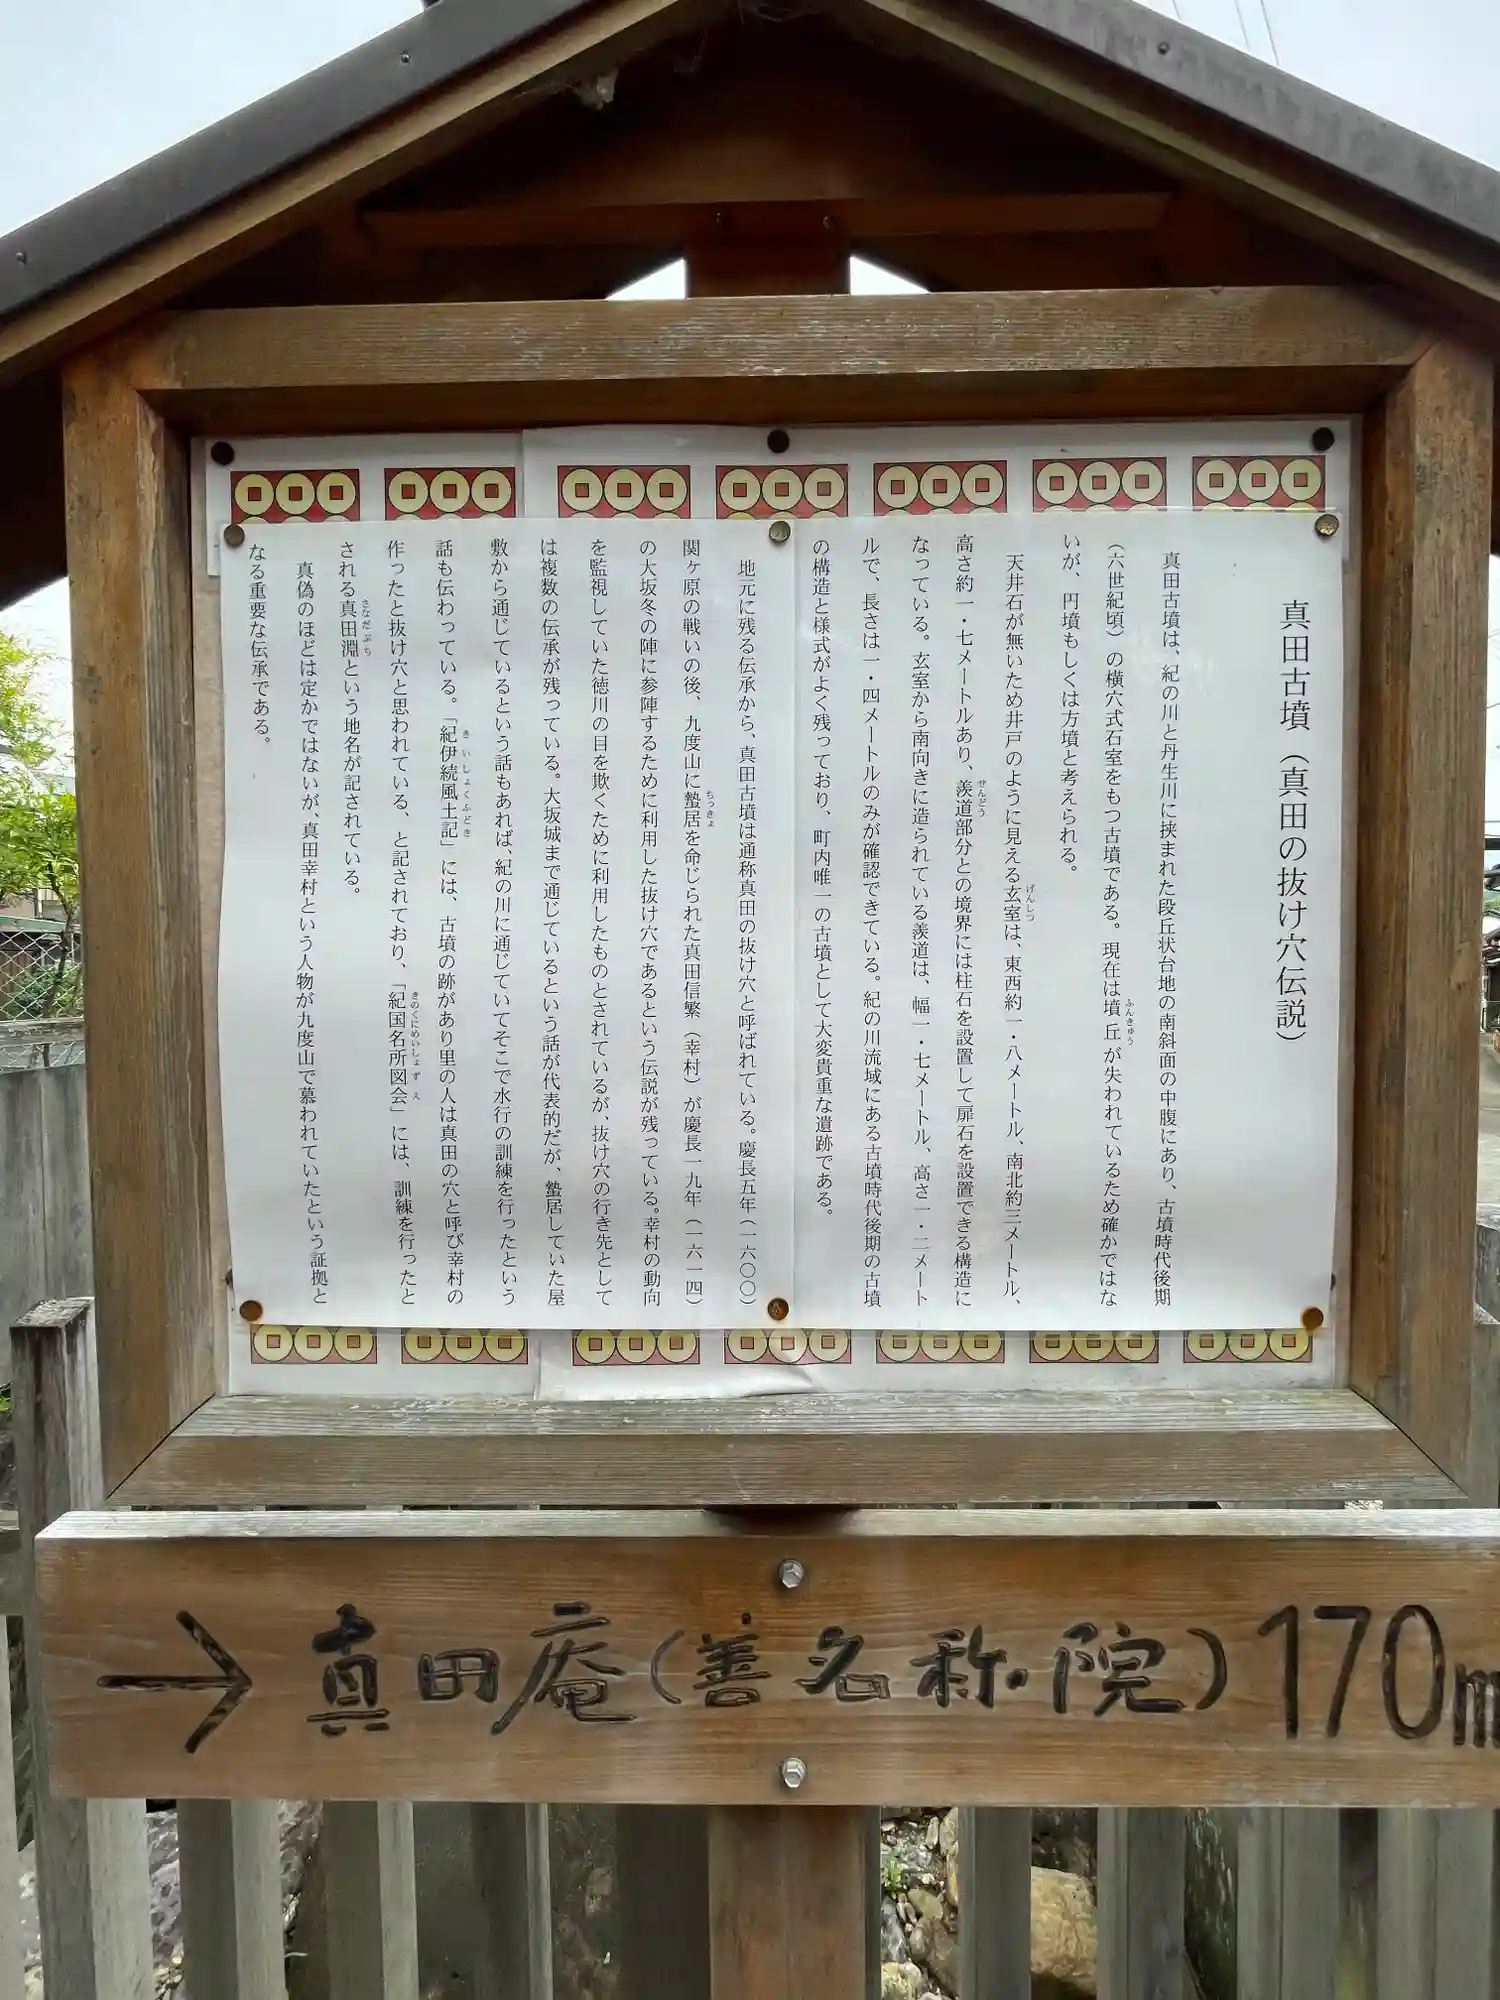 真田古墳（真田の抜け穴伝説）
真田古墳は、紀の川と丹生川に挟まれた段丘状台地の南斜面の中腹にあり、古墳時代後期
（六世紀頃）の横穴式石室をもつ古墳である。現在は墳丘が失われているため確かではな
いが、円墳もしくは方墳と考えられる。
天井石が無いため井戸のように見える玄室は、東西約一・八メートル、南北約三メートル、
高さ約一・七メートルあり、羨道部分との境界には柱石を設置して扉石を設置できる構造に
なっている。玄室から南向きに造られている羨道は、幅一・七メートル、高さ一・二メート
ルで、長さは一・四メートルのみが確認できている。紀の川流域にある古墳時代後期の古墳
の構造と様式がよく残っており、町内唯一の古墳として大変貴重な遺跡である。
地元に残る伝承から、真田古墳は通称真田の抜け穴と呼ばれている。慶長五年（一六〇〇）
関ヶ原の戦いの後、九度山に蟄居を命じられた真田信繁（幸村）が慶長一九年（一六一四）
の大坂冬の陣に参陣するために利用した抜け穴であるという伝説が残っている。幸村の動向
を監視していた徳川の目を欺くために利用したものとされているが、抜け穴の行き先として
は複数の伝承が残っている。大坂城まで通じているという話が代表的だが、蟄居していた屋
敷から通じているという話もあれば、紀の川に通じていてそこで水行の訓練を行ったという
話も伝わっている。「紀伊続風土記」には、古墳の跡があり里の人は真田の穴と呼び幸村の
作ったと抜け穴と思われている、と記されており、「紀国名所図会」には、訓練を行ったと
される真田淵という地名が記されている。
真偽のほどは定かではないが、真田幸村という人物が九度山で慕われていたという証拠と
なる重要な伝承である。
ふんきゅう
げんしつ
せんどう
ちっきょ
きいしょくふどき
きのくにめいしょずえ
さなだぶち
→真田庵(善名称院)170m